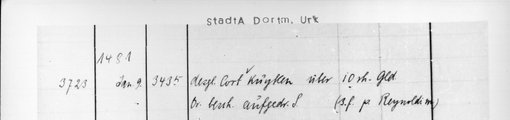 StadtA Dortm. Urk
1481
3723 Jan 9. 3435 desgl. Cort Kuyken über 10 rh. Gld
Or. besch. aufgedr. S (Bf. p Reynoldi m)